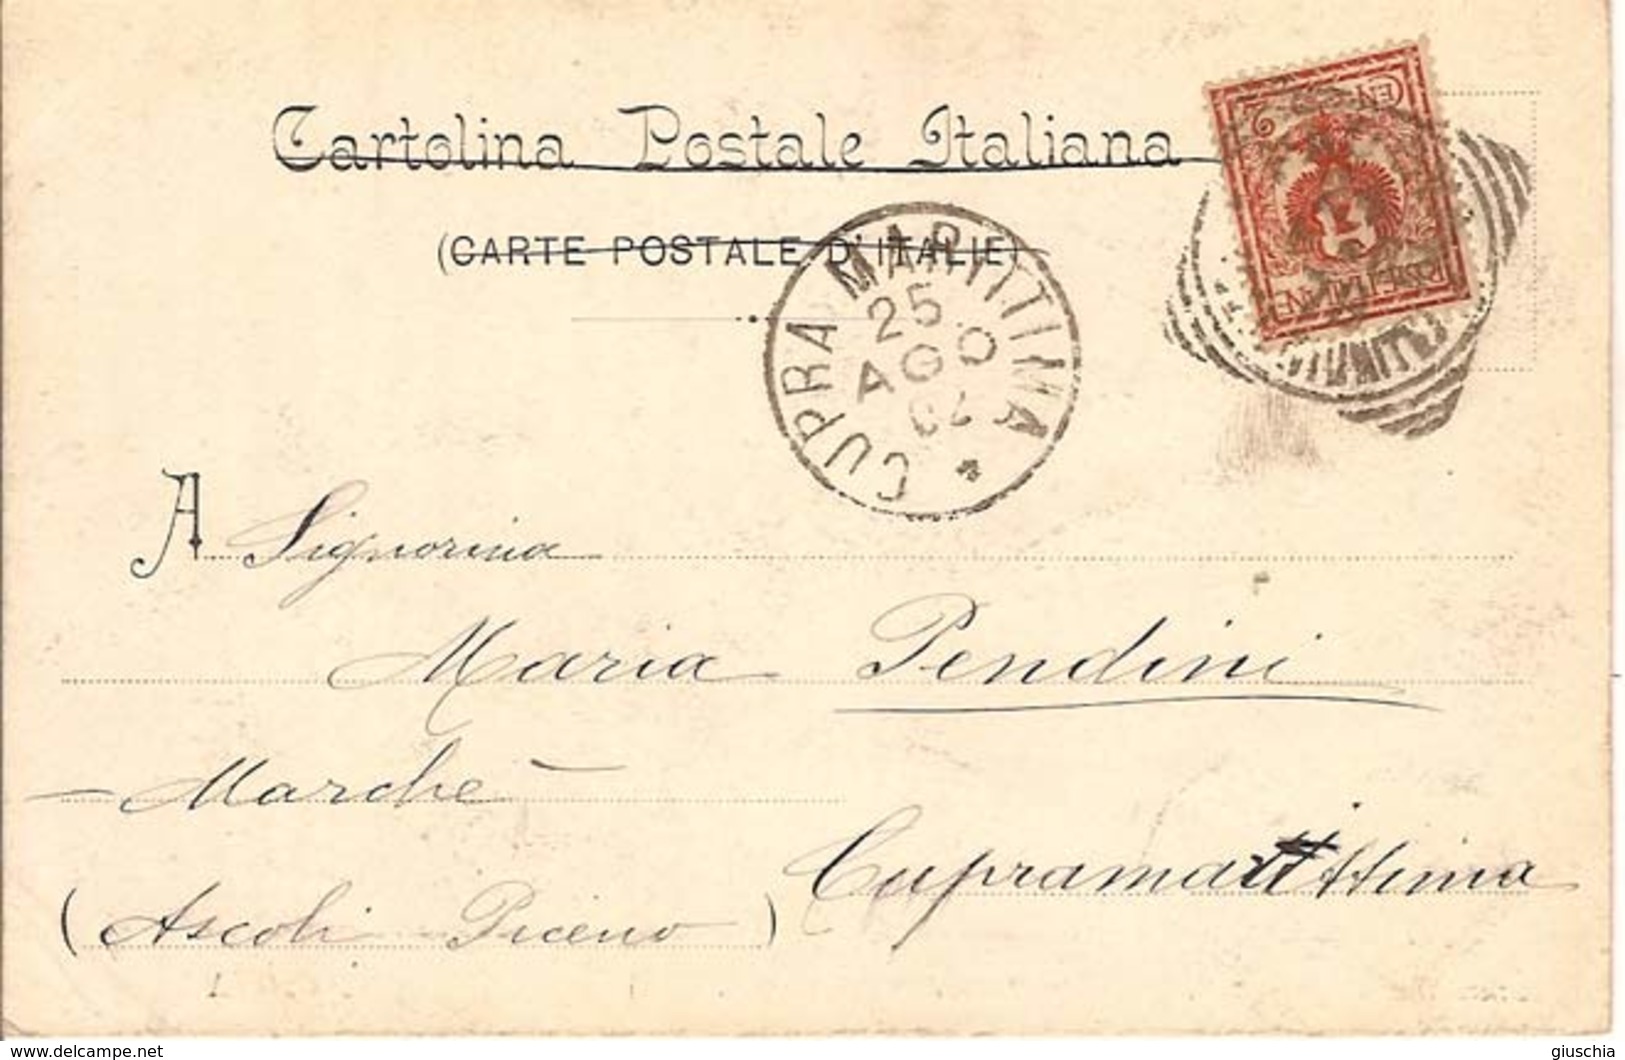 Cartolina Postale Italiana
(CARTE POSTALE D'ITALIE)
CUPRA MARITTIMA
25
AGO
02
CEN 2
POSTE ITALIANE
A Signorina
Maria Pendini
Marche
Cupramarittima
(Ascoli Piceno)
www.delcampe.net
giuschia